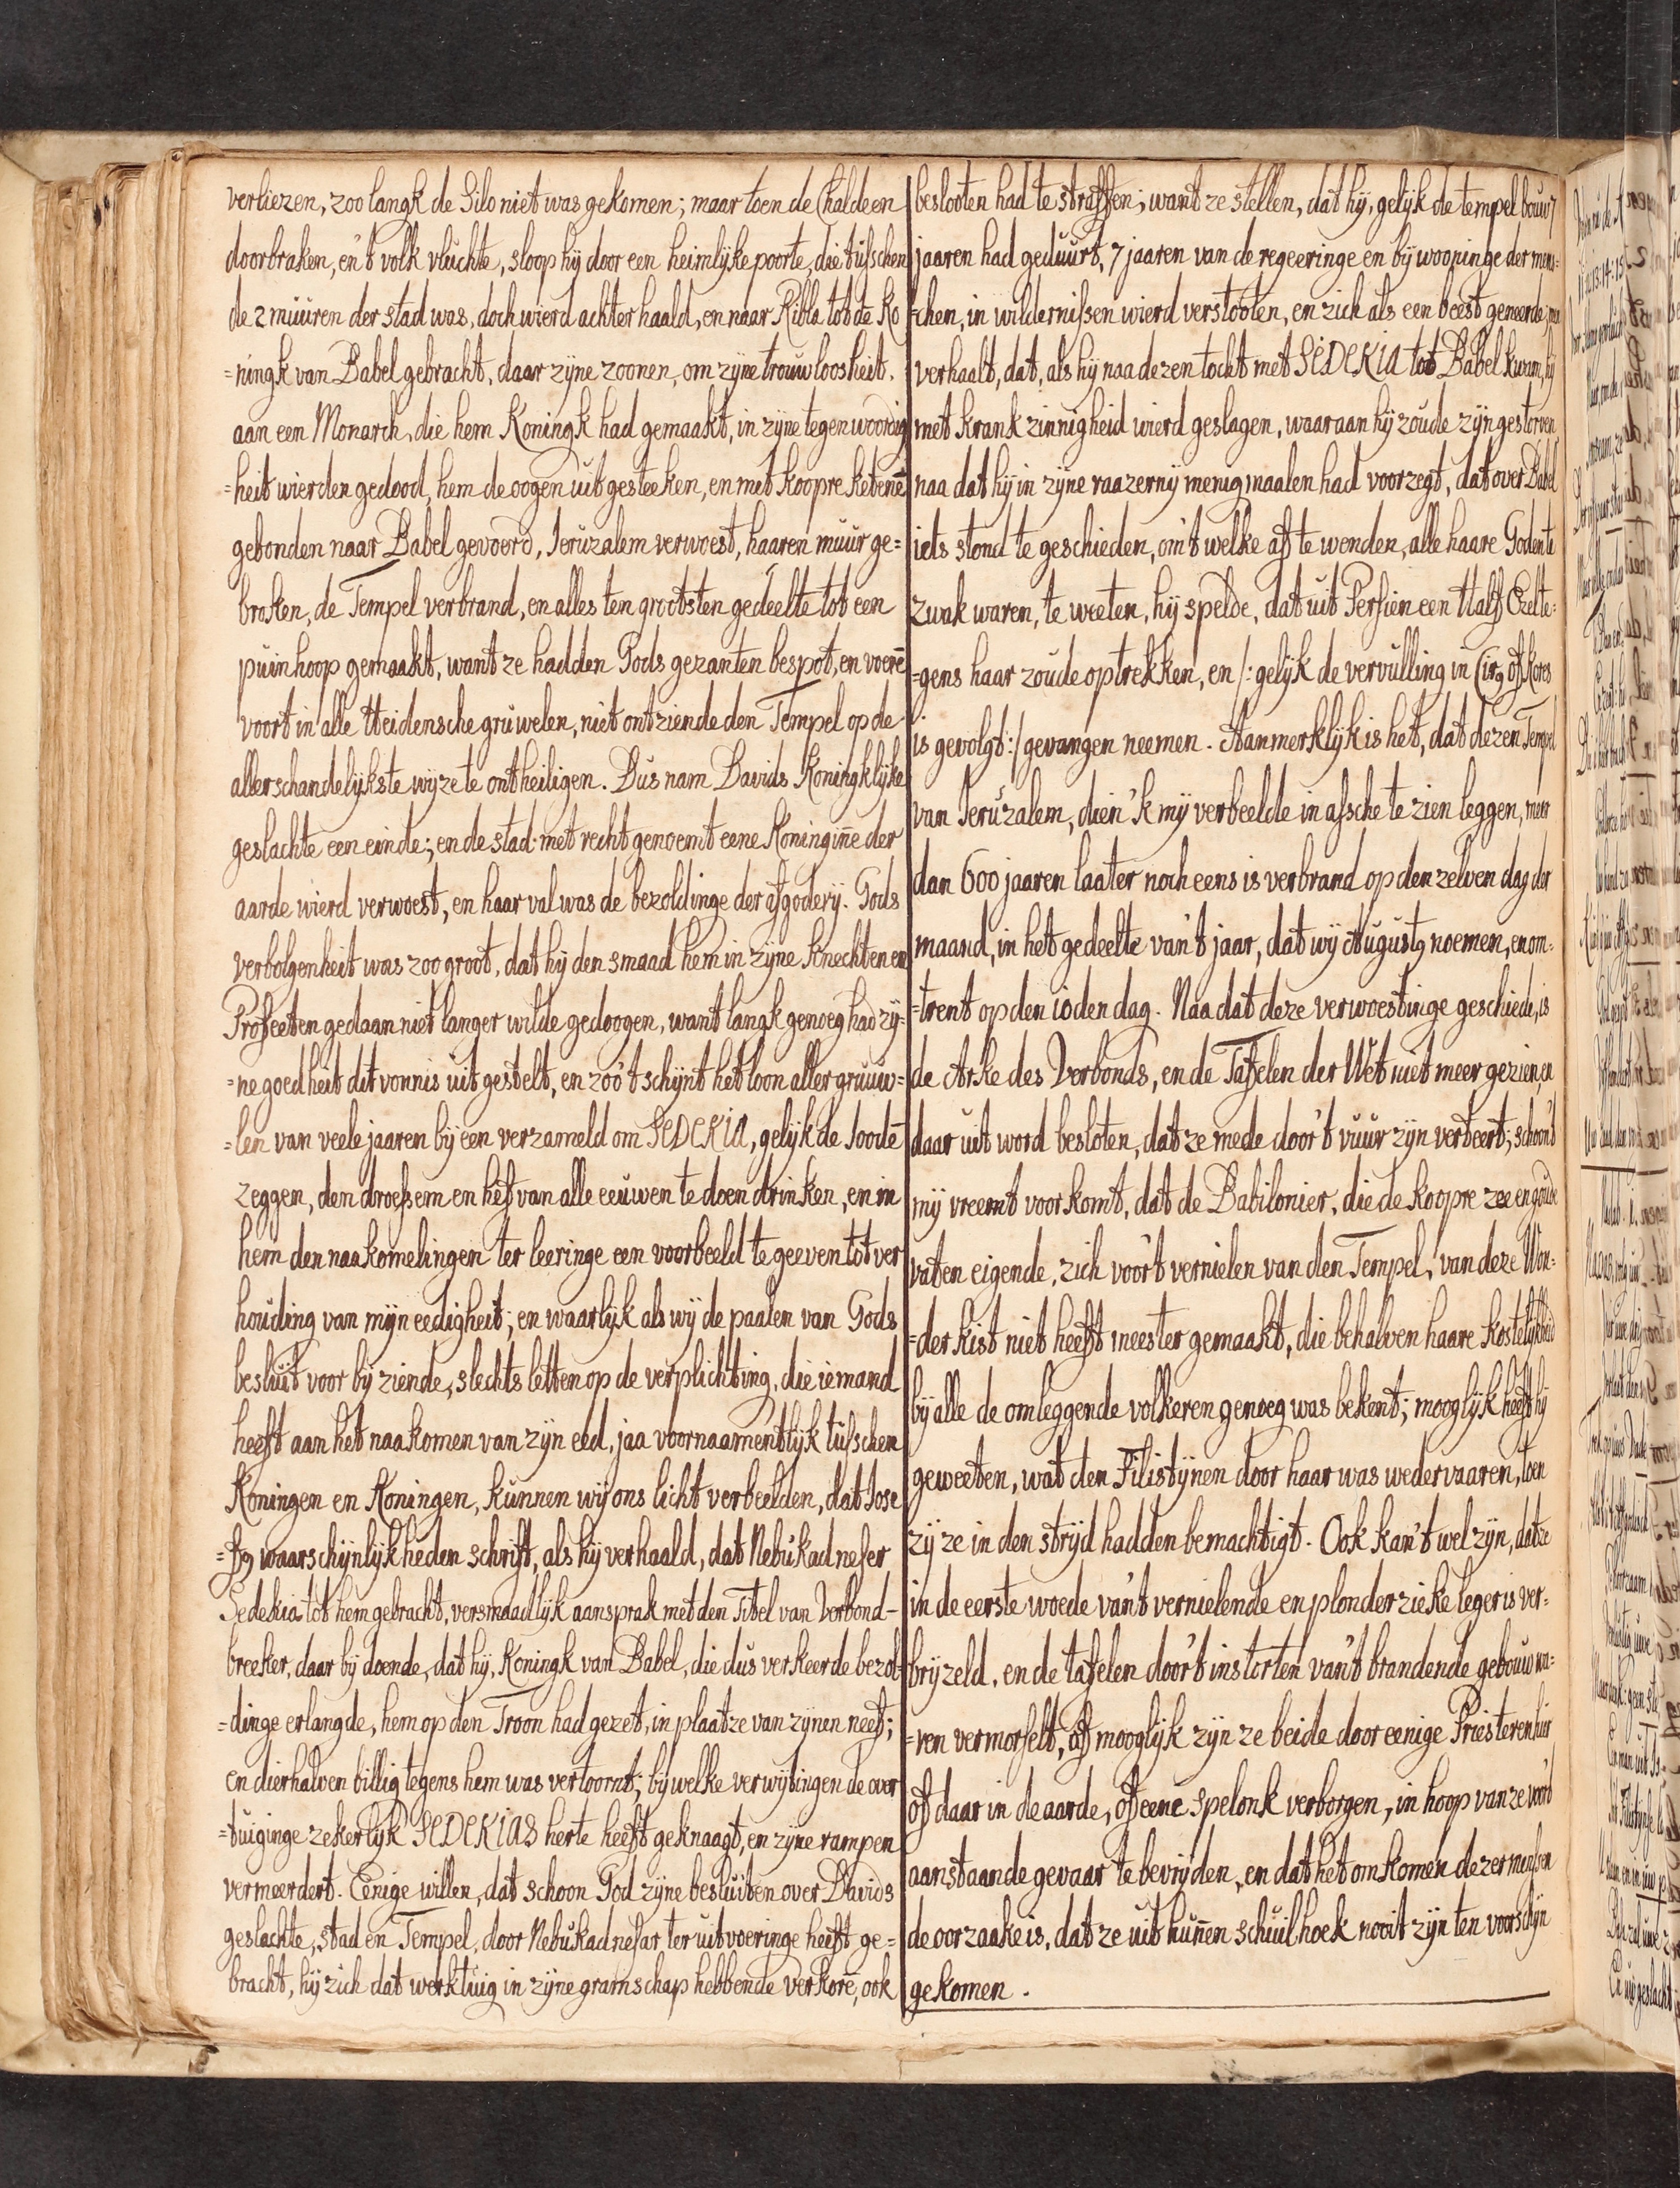 verliezen, zoo langk de Silo niet was gekomen; maar toen de Chaldeen
doorbraken, en 't volk vluchte, sloop hij door een heimlijke poorte, die tusschen
de 2 muuren der stad was, doch wierd achterhaald, en naar Ribla tot de Ko
=ningk van Babel gebracht, daar zijne zoonen, om zijne trouwloosheit,
aan een Monarch, die hem Koningk had gemaakt, in zijne tegenwoordig
=heit wierden gedood, hem de oogen uit gesteeken, en met koopre ketenē
gebonden naar Babel gevoerd, Ieruzalem verwoest, haaren muur ge=
broken, de Tempel verbrand, en alles ten grootsten gedeelte tot een
puinhoop gemaakt, want ze hadden Gods gezanten bespot, en voerē
voort in alle Heidensche gruwelen, niet ontziende den Tempel op de
allerschandelijkste wijze te ontheiligen. Dus nam Davids Koningklijke
geslachte een einde; en de stad met recht genoemt eene Koninginē der
aarde wierd verwoest, en haar val was de bezoldinge der afgoderij. Gods
verbolgenheit was zoo groot, dat hij den smaad hem in zijne Knechten en
Profeeten gedaan niet langer wilde gedoogen, want langk genoeg had zij=
=ne goedheit dit vonnis uitgestelt, en zoo 't schijnt het loon aller gruuw=
=len van veele jaaren bij een verzameld om SEDEKIA, gelijk de Joodē
zeggen, den droessem en hef van alle eeuwen te doen drinken, en in
hem den naakomelingen ter leeringe een voorbeeld te geeven tot ver
houding van mijneedigheit; en waarlijk als wij de paalen van Gods
besluit voor bij ziende, slechts letten op de verplichting, die iemand
heeft aan het naakomen van zijn eed, jaa voornaamentlijk tusschen
Koningen en Koningen, kunnen wij ons licht verbeelden, dat Jose
=fus waarschijnlijkheden schrift, als hij verhaald, dat Nebukadnesar
Sedekia tot hem gebracht, versmaadlijk aansprak met den Titel van Verbond-
breeker, daar bij doende, dat hij, Koningk van Babel, die dus verkeerde bezol
=dinge erlangde, hem op den Troon had gezet, in plaatze van zijnen neef;
en dierhalven billig tegens hem was vertoornt; bij welke verwijtingen de over
=tuiginge zekerlijk SEDEKIAS herte heeft geknaagt, en zijne rampen
vermeerdert. Eenige willen, dat schoon God zijne besluiten over Davids
geslachte, stad en Tempel, door Nebukadnesar ter uitvoeringe heeft ge=
bracht, hij zich dat werktuig in zijne gramschap hebbende verkorē, ook
beslooten had te straffen; want ze stellen, dat hij, gelijk de tempel bouw 7
jaaren had geduurt, 7 jaaren van de regeeringe en bijwooninge der mens=
=chen, in wildernissen wierd verstooten, en zich als een beest geneerde;
verhaalt, dat, als hij naa dezen tocht met SEDEKIA tot Babel kwam, hij
met krankzinnigheid wierd geslagen, waaraan hij zoude zijn gestorven
naa dat hij in zijne raazernij menigmaalen had voorzegt, dat over Babel
iets stond te geschieden, om 't welke af te wenden, alle haare Goden te
zwak waren, te weeten, hij spelde, dat uit Persien een Half Ezel te=
=gens haar zoude optrekken, en /: gelijk de vervulling in Cirus of Kores
is gevolgt :/ gevangen neemen. Aanmerklijk is het, dat dezen Tempel
van Ieruzalem, dien 'k mij verbeelde in assche te zien leggen, meer
dan 600 jaaren laater noch eens is verbrand op den zelven dag der
maand, in het gedeelte van 't jaar, dat wij Augustus noemen, en om=
=trent op den 10den dag. Naa dat deze verwoestinge geschiede, is
de Arke des Verbonds, en de Tafelen der Wet niet meer gezien, en
daar uit word besloten, dat ze mede door 't vuur zijn verteert; schoon 't
mij vreemt voorkomt, dat de Babilonier, die de koopre zee en goude
vaten eigende, zich voor 't vernielen van den Tempel, van deze Won=
=der kist niet heeft meester gemaakt, die behalven haare kostelijkheid
bij alle de omleggende volkeren genoeg was bekent; mooglijk heeft hij
geweeten, wat den Filistijnen door haar was wedervaaren, toen
zij ze in den strijd hadden bemachtigt. Ook kan 't wel zijn, dat ze
in de eerste woede van 't vernielende en plonderzieke leger is ver=
brijzeld, en de tafelen door 't instorten van 't brandende gebouw wa=
=ren vermorselt, of mooglijk zijn ze beide door eenige Priesteren hier
of daar in de aarde, of eene spelonk verborgen, in hoop van ze voor 't
aanstaande gevaar te bevrijden, en dat het omkomen dezer menssen
de oorzaake is, dat ze uit hunēn schuilhoek nooit zijn ten voorschijn
gekomen.